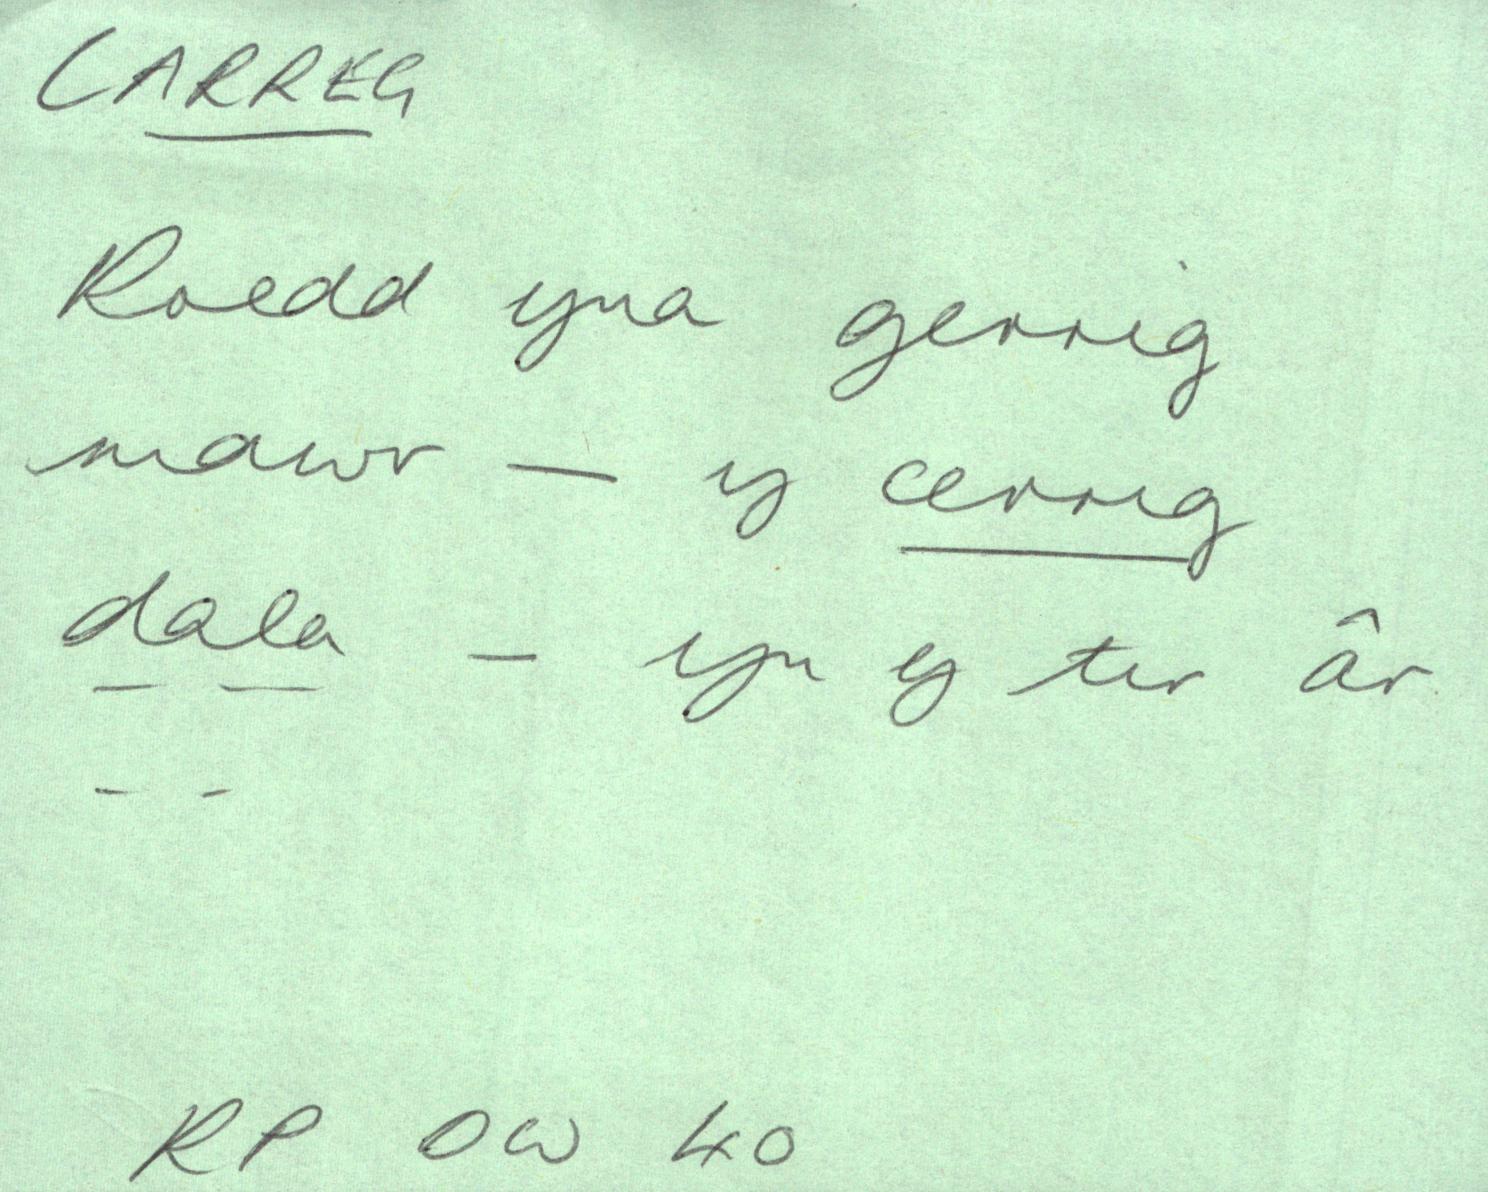 CARREG
Roedd yna gerrig
mawr — y cerrig
dala — yn y tir âr
- -
RP OW 40